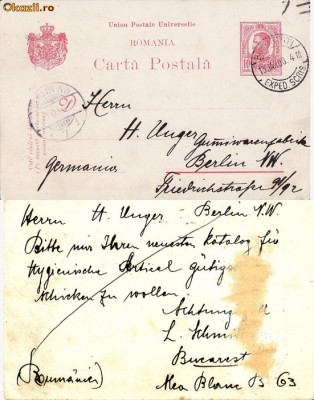 Okazii.ro
Union Postale Universelle
ROMANIA
Carta Postala
10
EXPED. SCRIS.
Herrn
H. Unger Gummiwarenfabrik
Berlin N.W.
Germania
Friedrichstraße 91/92
Herrn H. Unger Berlin N.W
Bitte mir Ihren neuesten Katalog für
Hygienische Artical gütigst
schicken zu wollen
L. Schmi
Bucarest
(Rumänien)
63